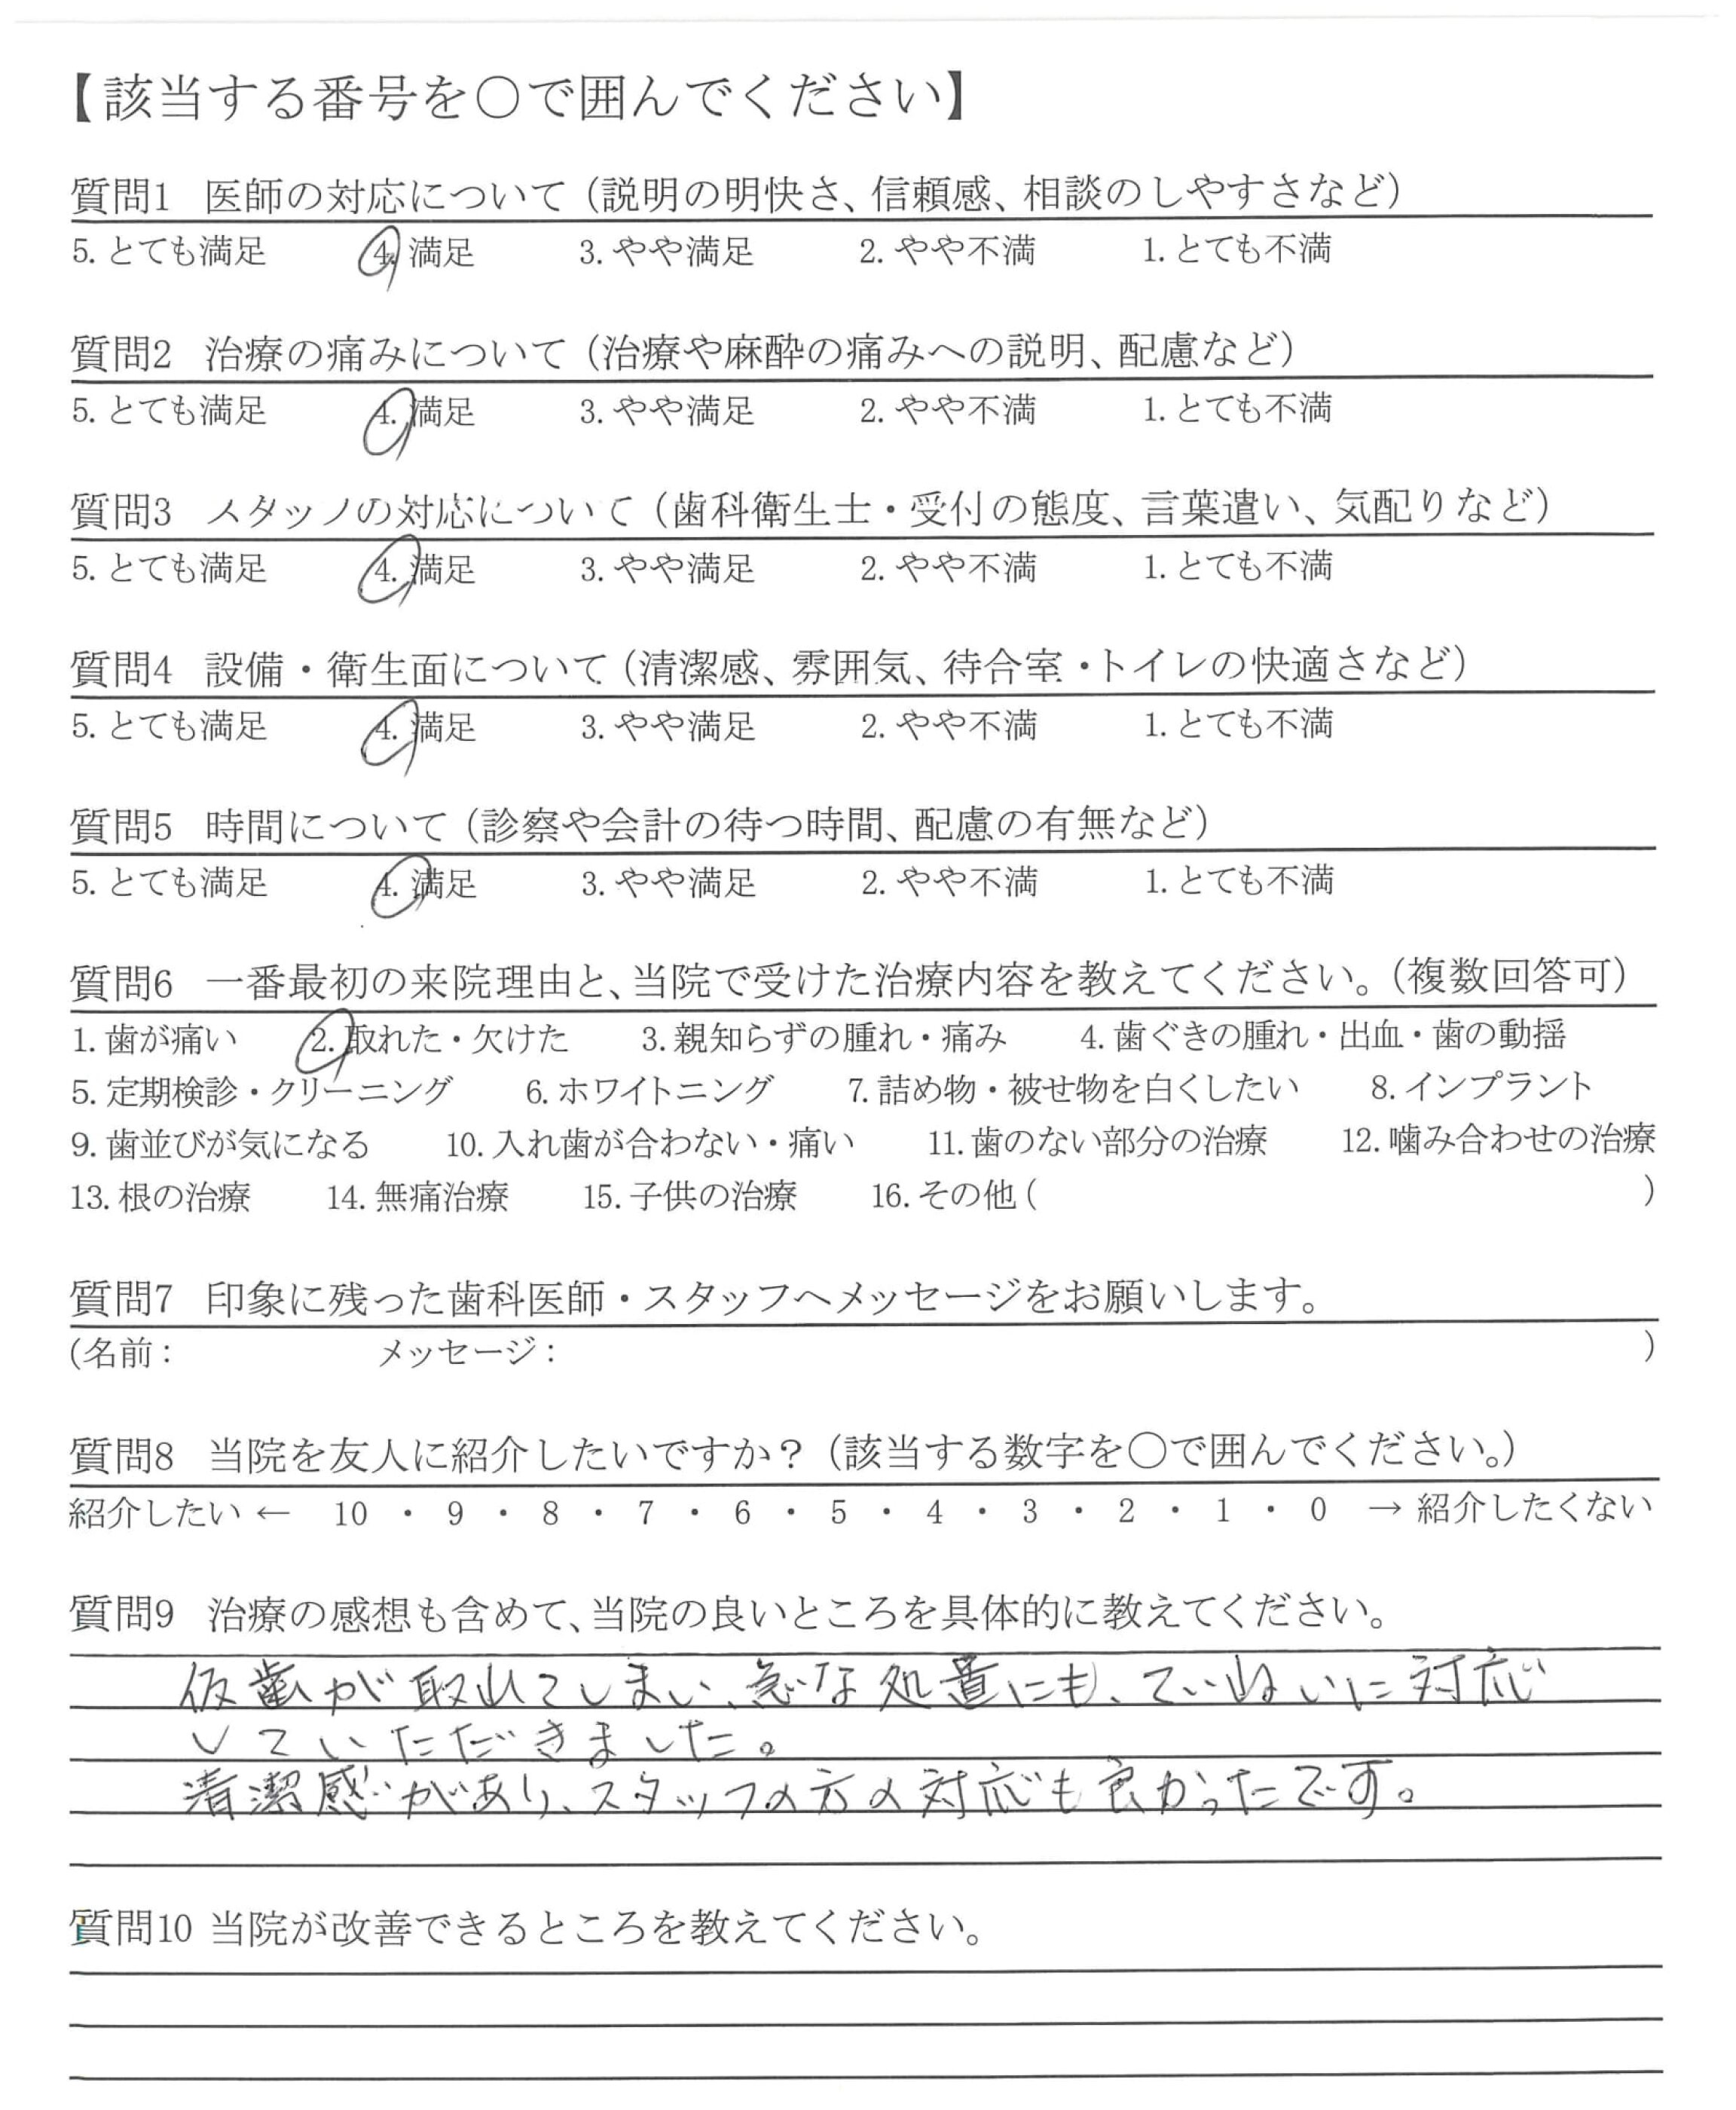 【該当する番号を○で囲んでください】
質問1 医師の対応について（説明の明快さ、信頼感、相談のしやすさなど）
5. とても満足 4. 満足 3. やや満足 2. やや不満 1. とても不満
質問2 治療の痛みについて（治療や麻酔の痛みへの説明、配慮など）
5. とても満足 4. 満足 3. やや満足 2. やや不満 1. とても不満
質問3 スタッフの対応について（歯科衛生士・受付の態度、言葉遣い、気配りなど）
5. とても満足 4. 満足 3. やや満足 2. やや不満 1. とても不満
質問4 設備・衛生面について（清潔感、雰囲気、待合室・トイレの快適さなど）
5. とても満足 4. 満足 3. やや満足 2. やや不満 1. とても不満
質問5 時間について（診察や会計の待つ時間、配慮の有無など）
5. とても満足 4. 満足 3. やや満足 2. やや不満 1. とても不満
質問6 一番最初の来院理由と、当院で受けた治療内容を教えてください。（複数回答可）
1. 歯が痛い 2. 取れた・欠けた 3. 親知らずの腫れ・痛み 4. 歯ぐきの腫れ・出血・歯の動揺
5. 定期検診・クリーニング 6. ホワイトニング 7. 詰め物・被せ物を白くしたい 8. インプラント
9. 歯並びが気になる 10. 入れ歯が合わない・痛い 11. 歯のない部分の治療 12. 噛み合わせの治療
13. 根の治療 14. 無痛治療 15. 子供の治療 16. その他 ( )
質問7 印象に残った歯科医師・スタッフへメッセージをお願いします。
(名前： メッセージ： )
質問8 当院を友人に紹介したいですか？（該当する数字を○で囲んでください。）
紹介したい ← 10 ・ 9 ・ 8 ・ 7 ・ 6 ・ 5 ・ 4 ・ 3 ・ 2 ・ 1 ・ 0 → 紹介したくない
質問9 治療の感想も含めて、当院の良いところを具体的に教えてください。
仮歯が取れてしまい、急な処置にも、ていねいに対応
していただきました。
清潔感があり、スタッフの方の対応も良かったです。
質問10 当院が改善できるところを教えてください。